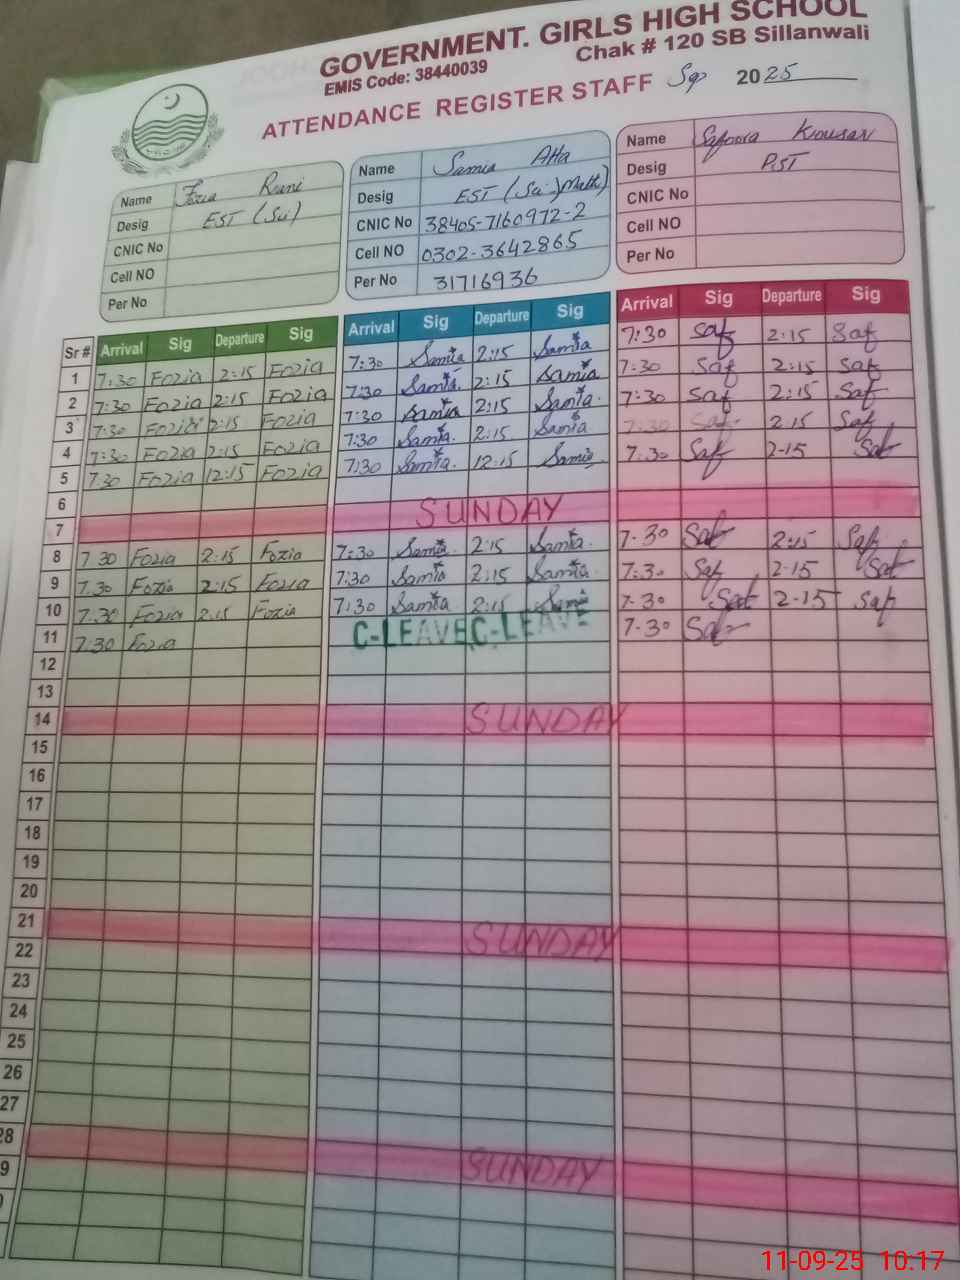 GOVERNMENT. GIRLS HIGH SCHOOL
EMIS Code: 38440039 Chak # 120 SB Sillanwali
ATTENDANCE REGISTER STAFF Sep 2025
Name Fozia Rani
Desig EST (Sci)
CNIC No
Cell NO
Per No
Name Samia Atta
Desig EST (Sci) Math)
CNIC No 38405-7160972-2
Cell NO 0302-3642865
Per No 31716936
Name Safoora Kousar
Desig PST
CNIC No
Cell NO
Per No
Sr # Arrival Sig Departure Sig Arrival Sig Departure Sig Arrival Sig Departure Sig
1 7:30 Fozia 2:15 Fozia 7:30 Samia 2:15 Samia 7:30 Saf 2:15 Saf
2 7:30 Fozia 2:15 Fozia 7:30 Samia 2:15 Samia 7:30 Saf 2:15 Saf
3 7:30 Fozia 2:15 Fozia 7:30 Samia 2:15 Samia 7:30 Saf 2:15 Saf
4 7:30 Fozia 2:15 Fozia 7:30 Samia 2:15 Samia 7:30 Saf 2.15 Saf
5 7:30 Fozia 12:15 Fozia 7:30 Samia 12:15 Samia 7:30 Saf 2-15 Saf
6
7 SUNDAY
8 7.30 Fozia 2:15 Fozia 7:30 Samia 2:15 Samia 7-30 Saf 2:15 Saf
9 7.30 Fozia 2:15 Fozia 7:30 Samia 2:15 Samia 7:30 Saf 2-15 Saf
10 7:30 Fozia 2:15 Fozia 7:30 Samia 2:15 Samia 7-30 Saf 2-15 Saf
11 7:30 Fozia C-LEAVE C-LEAVE 7-30 Saf
12
13
14 SUNDAY
15
16
17
18
19
20
21 SUNDAY
22
23
24
25
26
27
28 SUNDAY
9
11-09-25 10:17